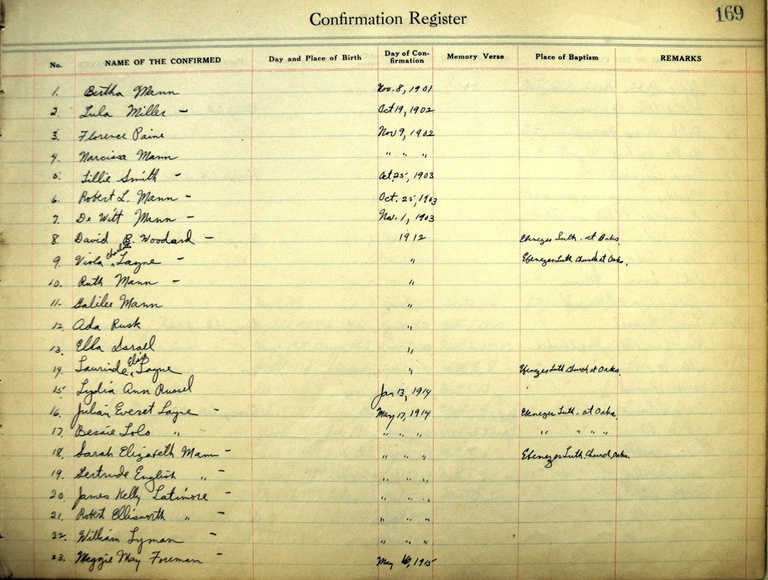 169
Confirmation Register
No. NAME OF THE CONFIRMED Day and Place of Birth Day of Con-firmation Memory Verse Place of Baptism REMARKS
1. Bertha Mann Nov. 8, 1901
2. Lula Miller - Oct 19, 1902
3. Florence Paine Nov 9, 1902
4. Narcissa Mann " " "
5. Lillie Smith - Oct. 25, 1903
6. Robert L. Mann - Oct. 25, 1903
7. De Witt Mann - Nov. 1, 1903
8. David E. Woodard - 1912 Ebenezer Luth. at Oaks.
9. Viola Charlotte Layne - " Ebenezer Luth. Church at Oaks.
10. Ruth Mann - "
11. Galilee Mann "
12. Ada Rusk "
13. Ella Israel "
14. Laurinde Layne " Ebenezer Luth Church at Oaks.
15. Lydia Ann Russel Jan 13, 1914
16. Julian Everet Layne - May 17, 1914 Ebenezer Luth. at Oaks.
17. Bessie Lolo " - " " " " " " "
18. Sarah Elizabeth Mann - " " " Ebenezer Luth. Church Oaks.
19. Gertrude English " - " " "
20. James Kelly Latimore - " " "
21. Robert Ellisworth " - " " "
22. William Lyman - " " "
23. Meggie May Foreman - May 16, 1915